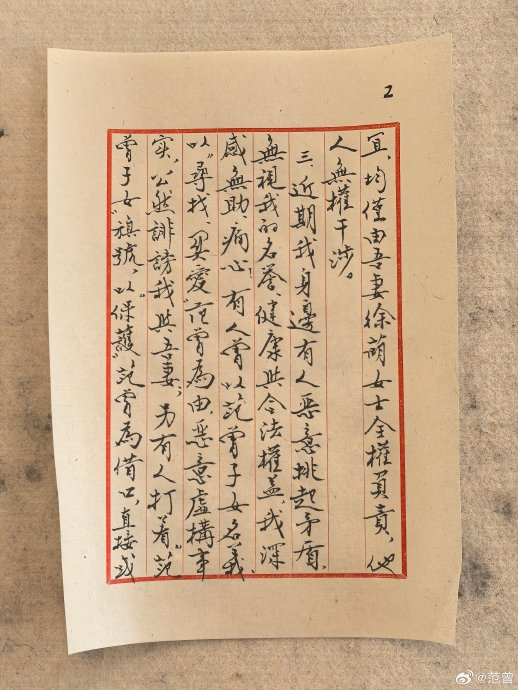 2
宜，均僅由吾妻徐萌女士全權負責，他
人無權干涉。
三、近期我身邊有人恶意挑起矛盾，
無視我的名誉、健康與合法權益，我深
感無助、痛心。有人曾以范曾子女名義，
以“尋找、関愛”范曾為由，恶意虛構事
实，公然誹謗我與吾妻；另有人打着“范
曾子女”旗號，以“保護”范曾為借口，直接或
@范曾